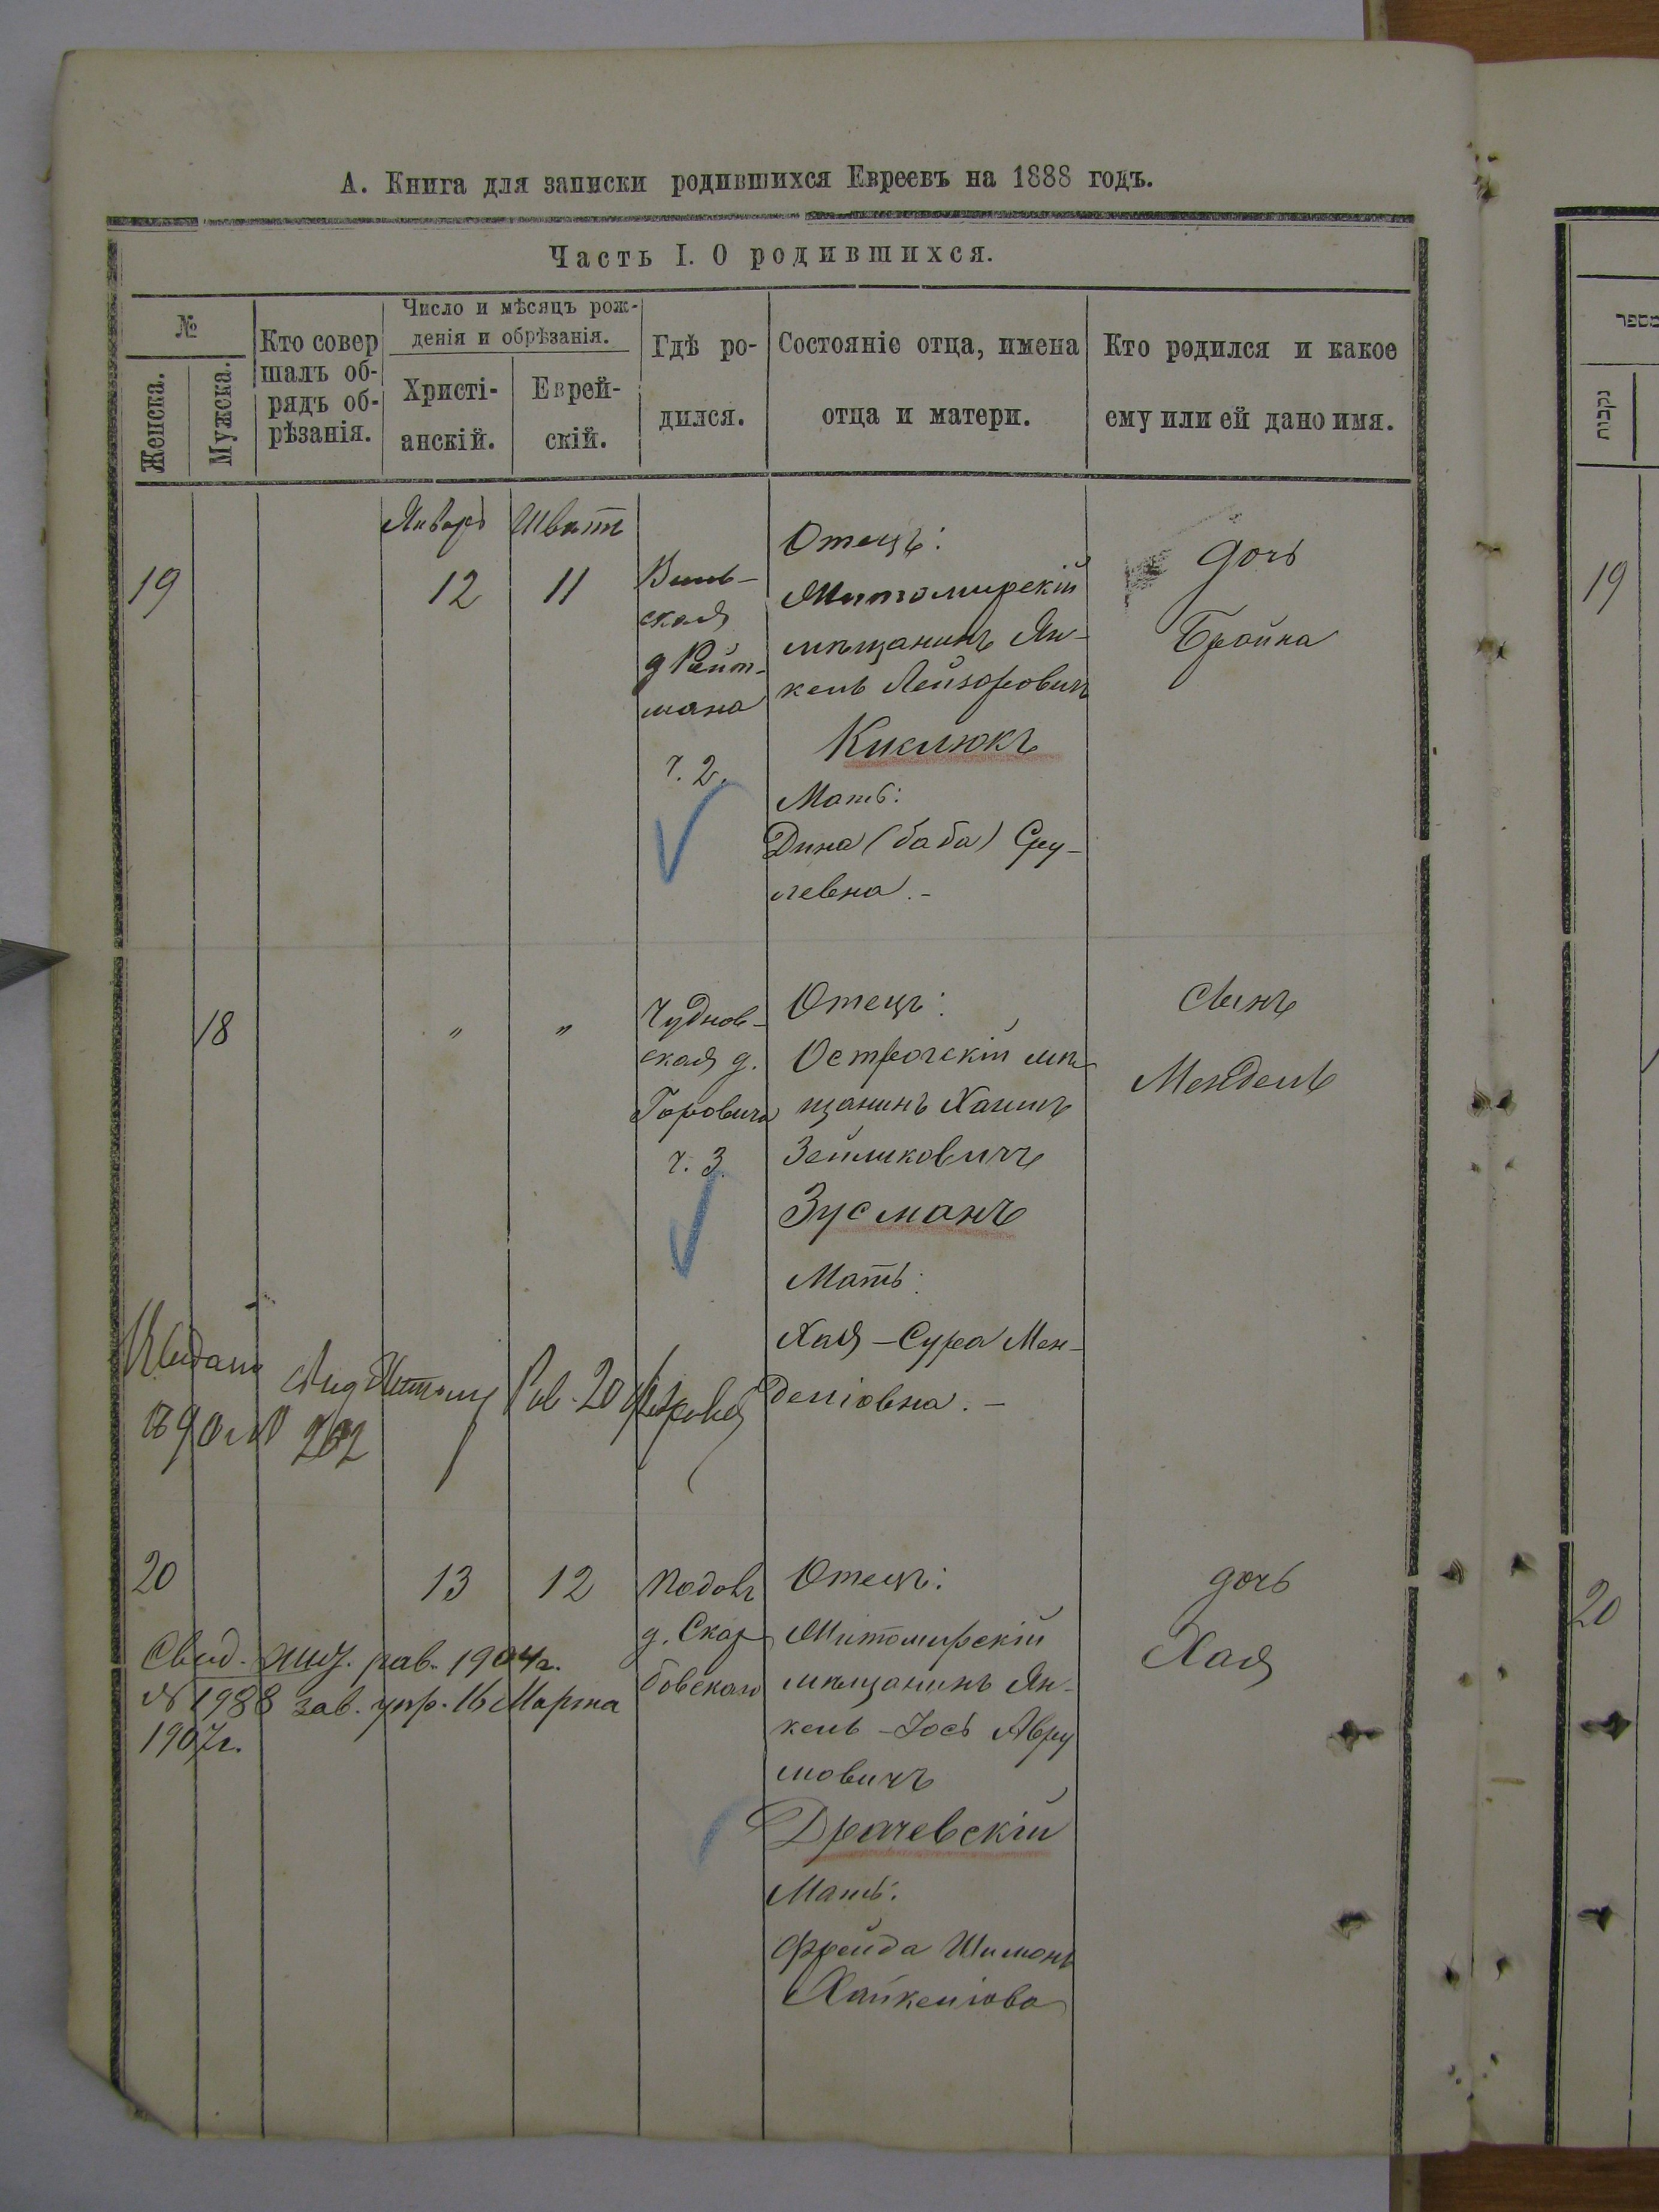 А. Книга для записки родившихся Евреевъ на 1888 годъ.
Часть I. О родившихся.
№
Женска.
Мужска.
Кто совер
шалъ об-
рядъ об-
рѣзанія.
Число и мѣсяцъ рож-
денія и обрѣзанія.
Христі-
анскій.
Еврей-
скій.
Гдѣ ро-
дился.
Состояніе отца, имена
отца и матери.
Кто родился и какое
ему или ей дано имя.
19
Январь
12
Шватъ
11
Виль-
ская
д Рейт-
мана
ч. 2.
Отецъ:
Житомирскій
мѣщанинъ Ян-
кель Лейзоровичъ
Киклюкъ
Мать:
Дина (баба) Сру-
левна.-
дочь
Бройна
18
"
"
Чуднов-
ская д.
Горовича
ч. 3.
Отецъ:
Острогскій мѣ
щанинъ Хаимъ
Зейликовичъ
Зусманъ
Мать:
Хая-Сура Мен-
деліовна.-
сынъ
Мендель
Рав. 20
262
20
13
12
д. Скар
бовскаго
Отецъ:
Житомирскій
мѣщанинъ Ян-
кель-Іось Авру
мовичъ
Драчевскій
Мать:
Фрейда Шимонъ
Хайкеліова
дочь
Хая
Свид. жит. рав. 1904г.
№ 1988 зав. упр. 16 Марта
1907г.
מספר
נקבות
19
20